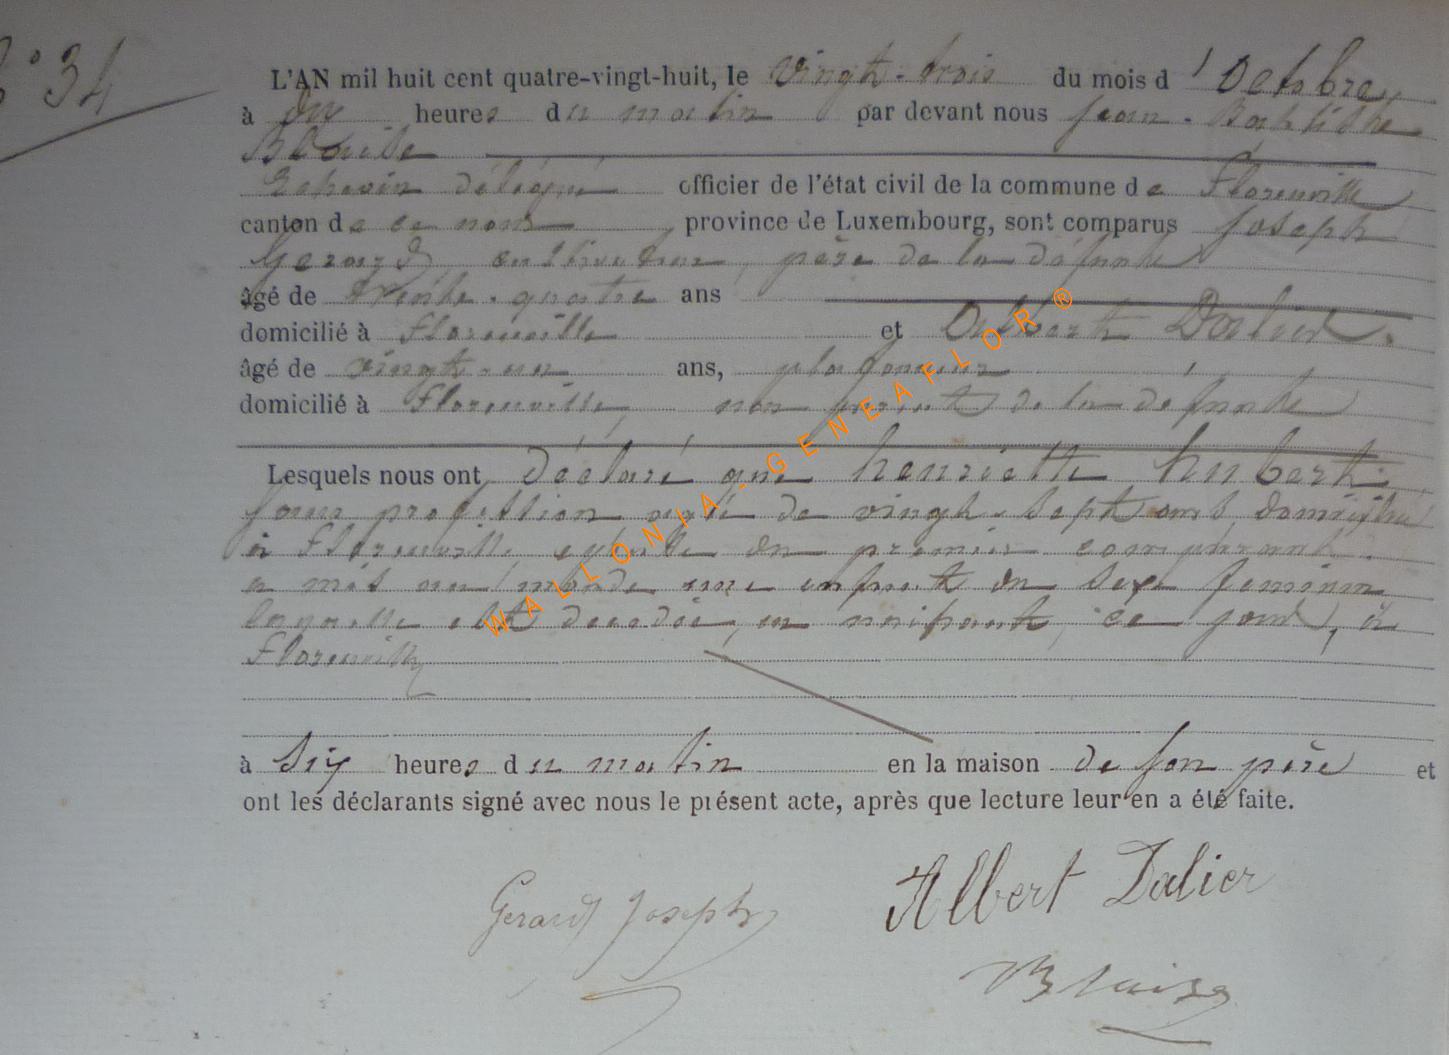 N° 34
L'AN mil huit cent quatre-vingt-huit, le vingt-trois du mois d'Octobre,
à dix heures du matin par devant nous Jean-Baptiste
Blaise
Echevin délégué officier de l'état civil de la commune de Florenville
canton de ce nom, province de Luxembourg, sont comparus Joseph
Gerard, cultivateur, père de la défunte
âgé de trente-quatre ans
domicilié à Florenville et Albert Dalier.
âgé de vingt-un ans, plafonneur
domicilié à Florenville, non parent de la défunte
Lesquels nous ont déclaré que henriette hubert
sans profession agée de vingt-sept ans, domiciliée
à Florenville épouse du premier comparant.
a mis au monde une enfant du sexe feminin
laquelle est decedée, en naissant, ce jourd, à
Florenville
à six heures du matin en la maison de son père et
ont les déclarants signé avec nous le présent acte, après que lecture leur en a été faite.
Gerard Joseph
Albert Dalier
Blaise
WALLONIA-GENEAFLOR®